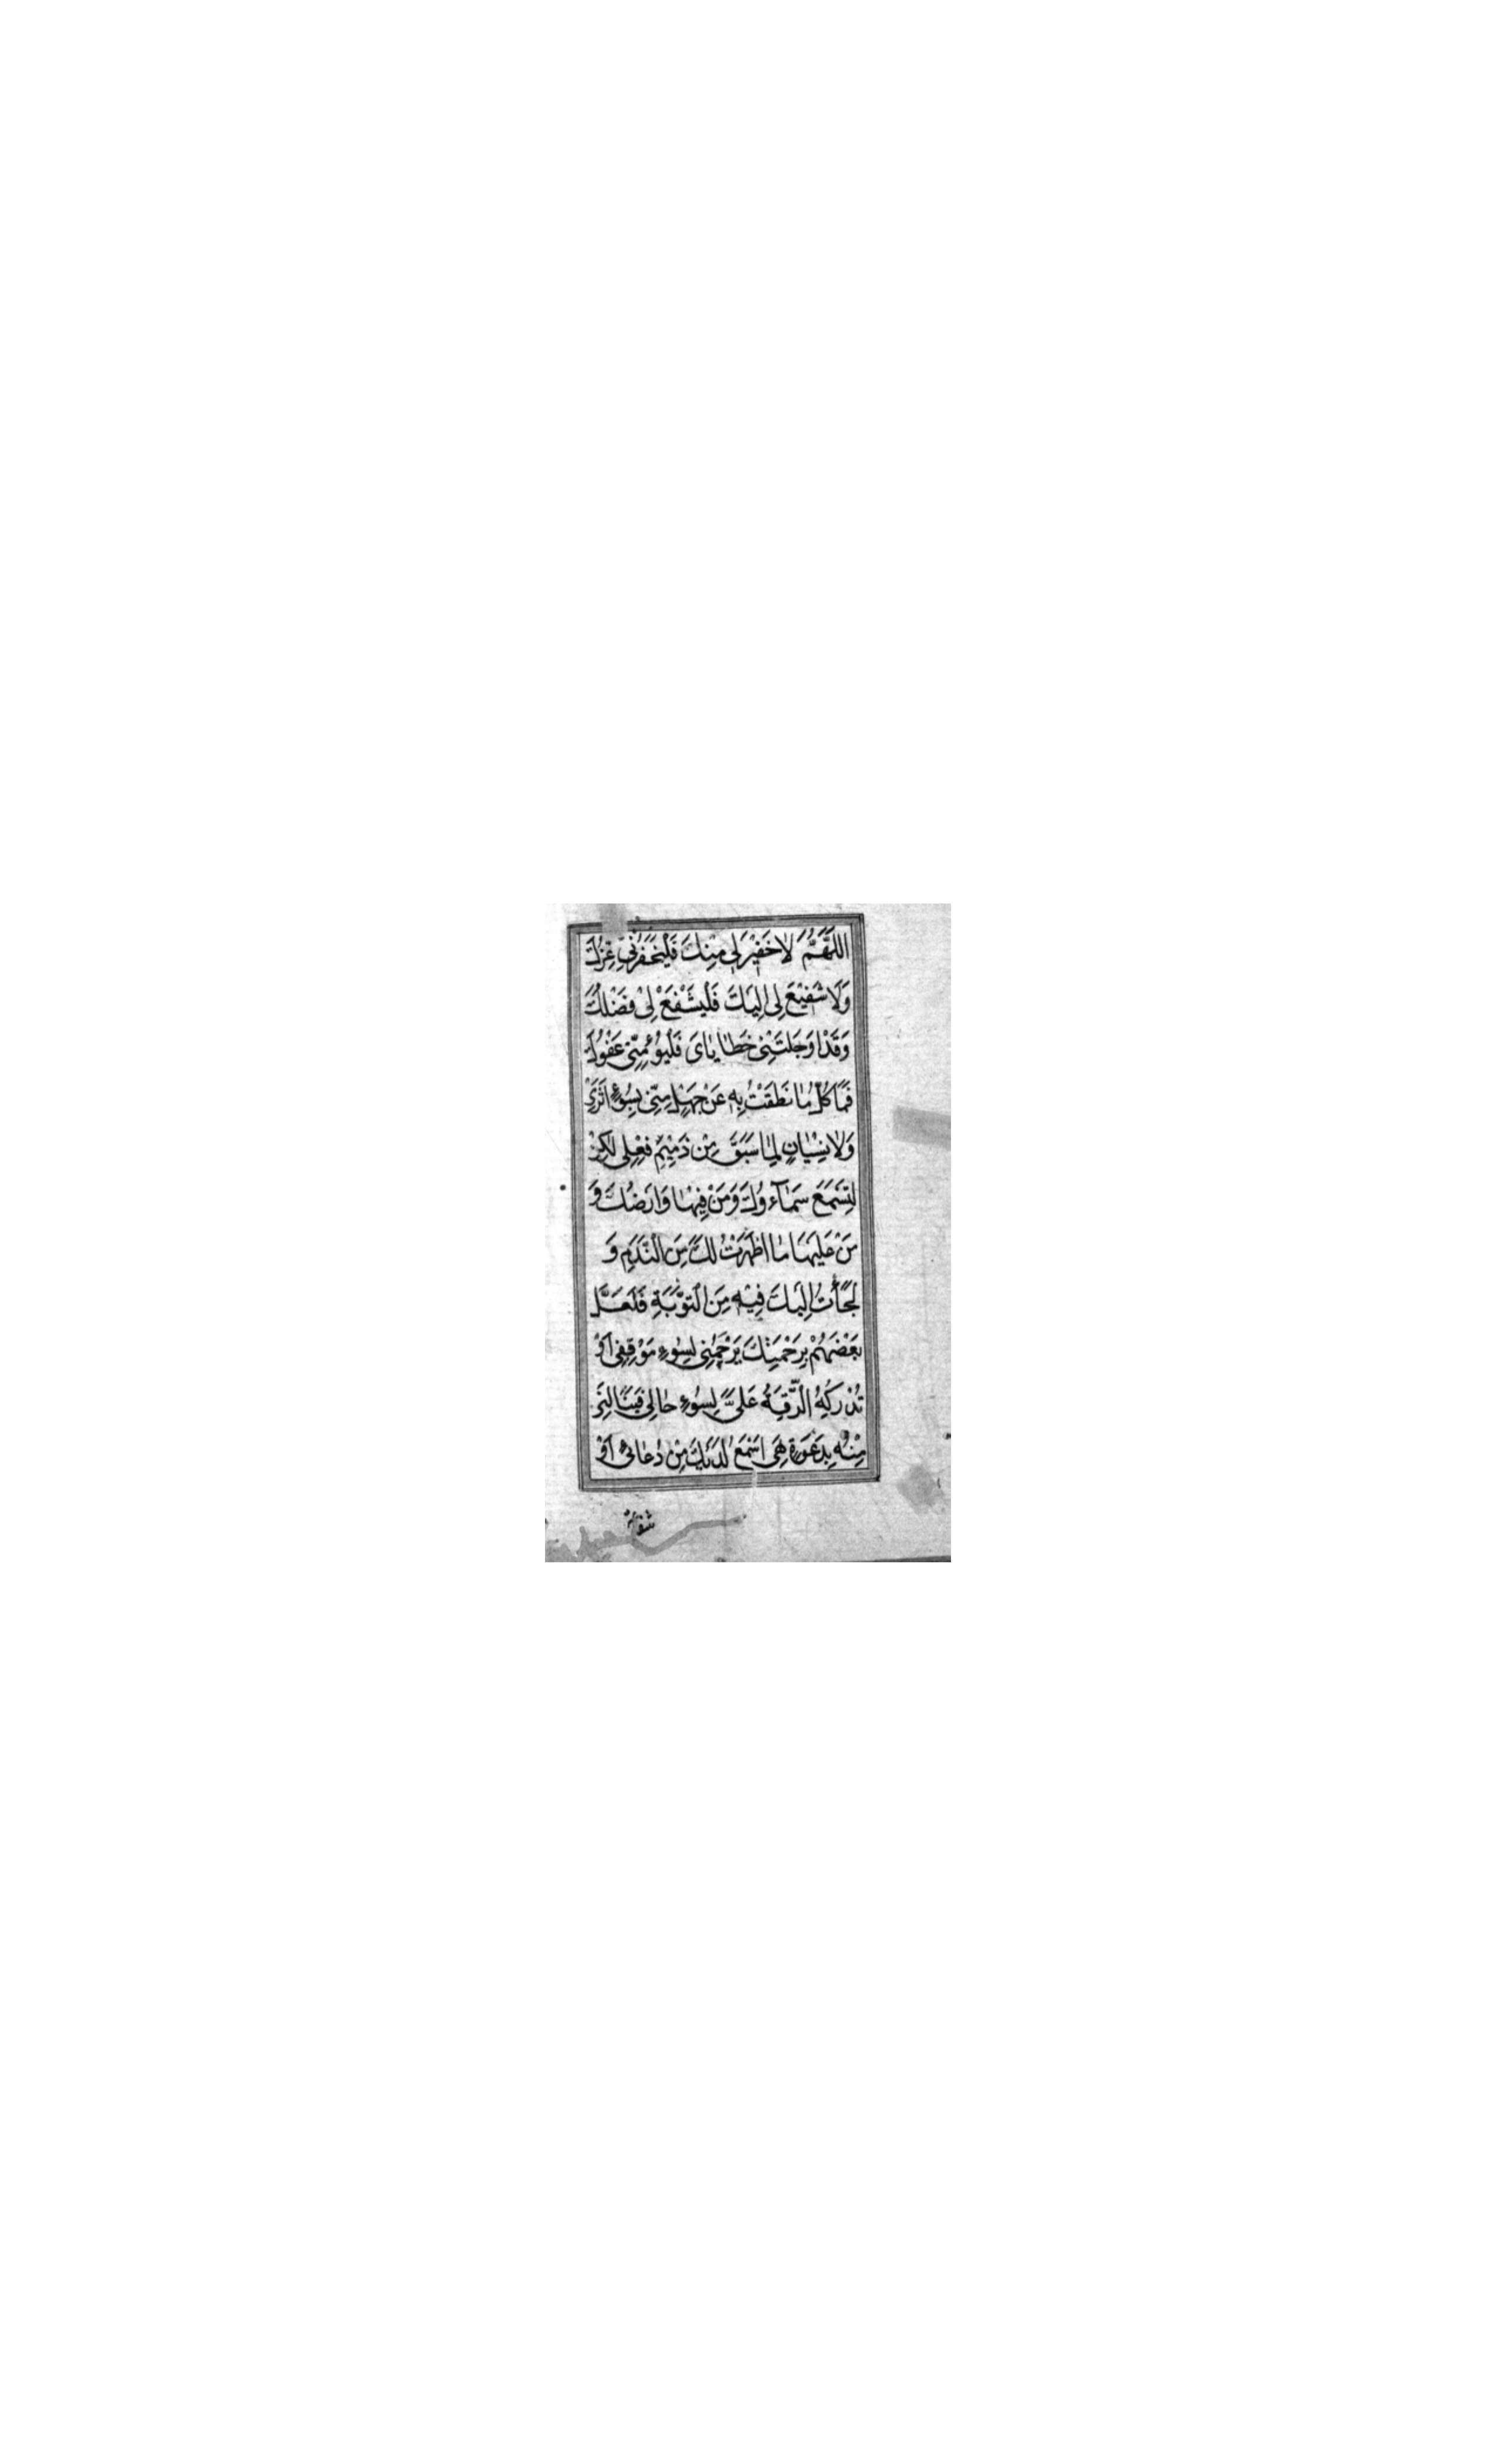 اَللّٰهُمَّ لَا خَفِيْرَ لِي مِنْكَ فَلْيَخْفُرْنِي عِزُّكَ
وَلَا شَفِيْعَ لِي اِلَيْكَ فَلْيَشْفَعْ لِيْ فَضْلُكَ
وَقَدْ اَوْجَلَتْنِيْ خَطَايَايَ فَلْيُؤْمِنِّي عَفْوُكَ
فَمَا كُلُّ مَا نَطَقْتُ بِهِ عَنْ جَهْلٍ مِنِّي بِسُوْءِ اَثَرِيْ
وَلَا نِسْيَانٍ لِمَا سَبَقَ مِنْ ذَمِيْمِ فِعْلِي لٰكِنْ
لِتَسْمَعَ سَمَاۤءُكَ وَمَنْ فِيْهَا وَاَرْضُكَ وَ
مَنْ عَلَيْهَا مَا اَظْهَرْتُ لَكَ مِنَ النَّدَمِ وَ
لَجَأْتُ اِلَيْكَ فِيْهِ مِنَ التَّوْبَةِ فَلَعَلَّ
بَعْضَهُمْ بِرَحْمَتِكَ يَرْحَمُنِي لِسُوْءِ مَوْقِفِي اَوْ
تُدْرِكُهُ الرِّقَّةُ عَلَيَّ لِسُوْءِ حَالِي فَيَنَالَنِيْ
مِنْهُ بِدَعْوَةٍ هِيَ اَسْمَعُ لَدَيْكَ مِنْ دُعَائِيْ اَوْ